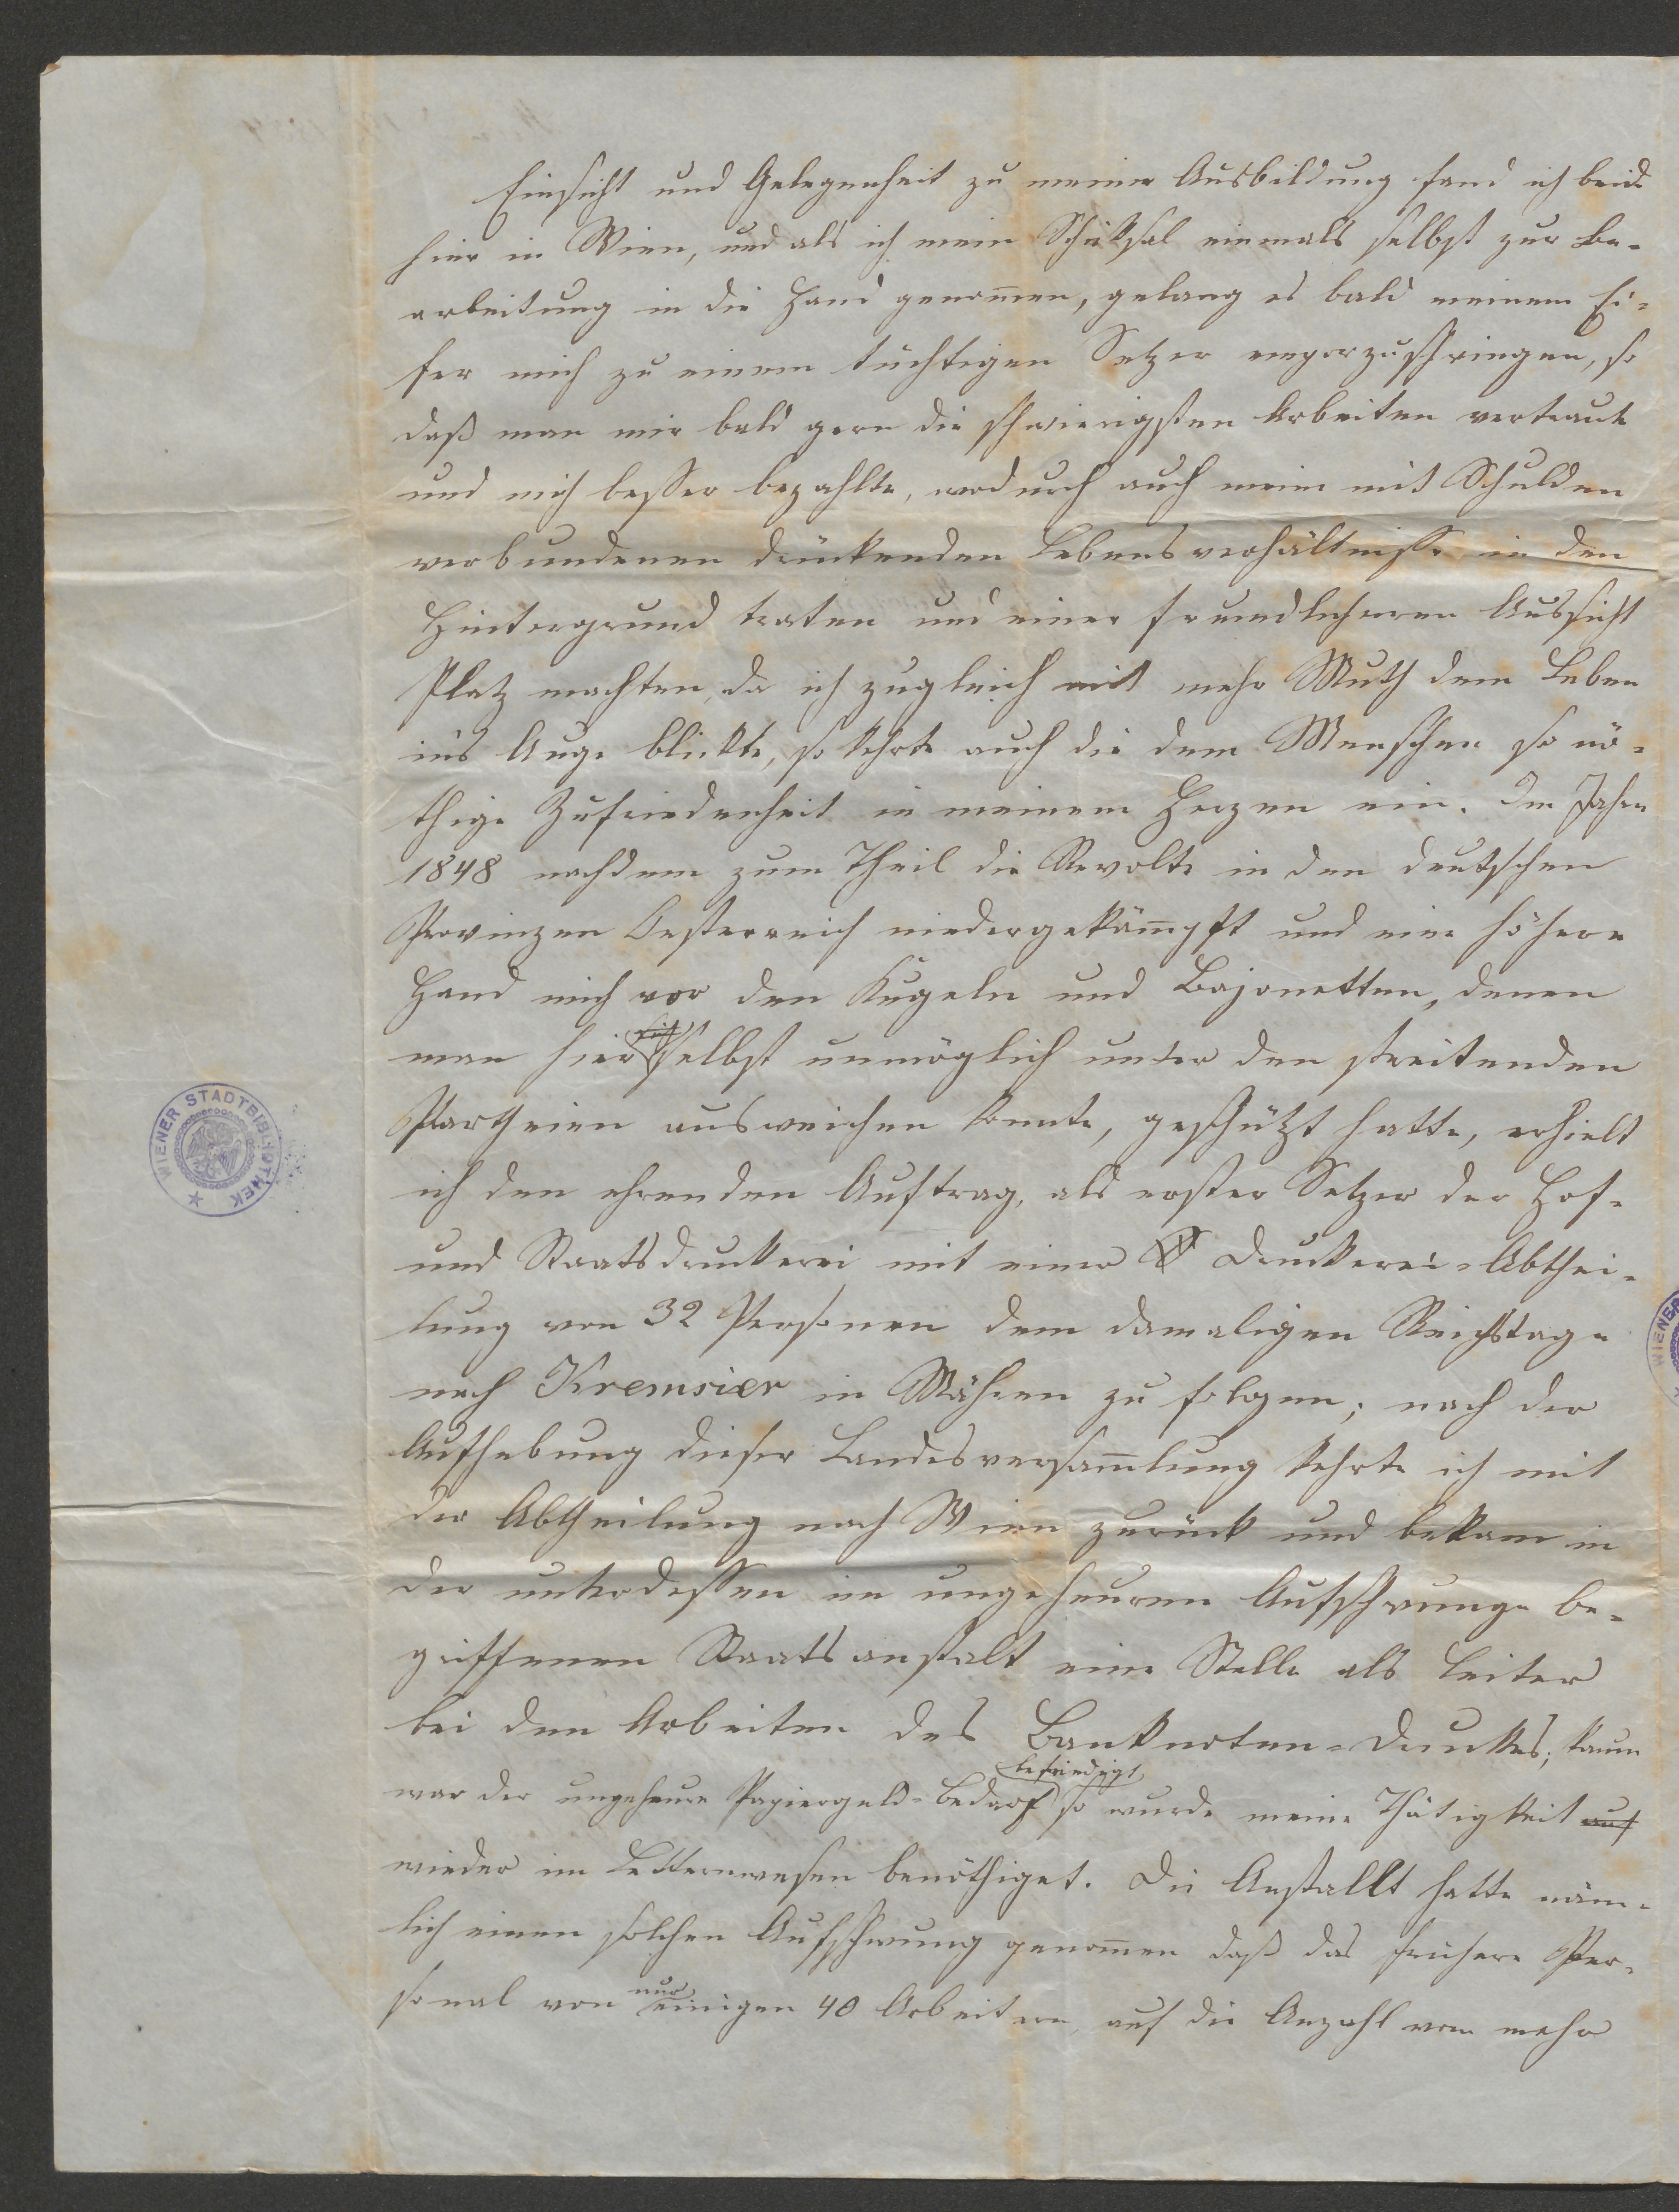 Einsicht und Gelegenheit zu meiner Ausbildung fand ich beide
hier in Wien, und als ich mein Schiksal einmals selbst zur Be-
arbeitung in die Hand genom̅en, gelang es bald meinem Ei-
fer mich zu einem tüchtigen Setzer emporzuschwingen, so
daß man mir bald gern die schwierigsten Arbeiten vertraute
und mich besser bezahlte, wodurch auch meine mit Schulden
verbundenen drückenden Lebensverhältnisse in den
Hintergrund traten und einer freundlicheren Aussicht
Platz machten, da ich zugleich mit mehr Muth dem Leben
in's Auge blickte, so kehrte auch die dem Menschen so nö-
thige Zufriedenheit in meinem Herzen ein. Im Jahre
1848 nachdem zum Theil die Revolte in den deutschen
Provinzen Oesterreich niedergekäm̅pft und eine höhere
Hand mich vor den Kugeln und Bajonetten, denen
man hier selbst unmöglich unter den streitenden
Partheien ausweichen konnte, geschützt hatte, erhielt
ich den ehrenden Auftrag, als erster Setzer der Hof-
und Staatsdruckerei mit einer Druckerei-Abthei-
lung von 32 Personen dem damaligen Reichstage
nach Kremsier in Mähren zu folgen; nach der
Aufhebung dieser Landesversam̅lung kehrte ich mit
der Abtheilung nach Wien zurück und bekam in
der unterdessen im ungeheuren Aufschwunge be-
griffenen Staatsanstalt eine Stelle als Leiter
bei den Arbeiten des Banknoten-Druckes; kaum
war der ungeheure Papiergeld-Bedarf befriedigt so wurde meine Thätigkeit auf
wieder im Letternwesen benöthiget. Die Anstallt hatte näm-
lich einen solchen Aufschwung genom̅en daß das frühere Per-
sonal von nur einigen 40 Arbeitern, auf die Anzahl von mehr
WIENER STADTBIBLIOTHEK
WIENER